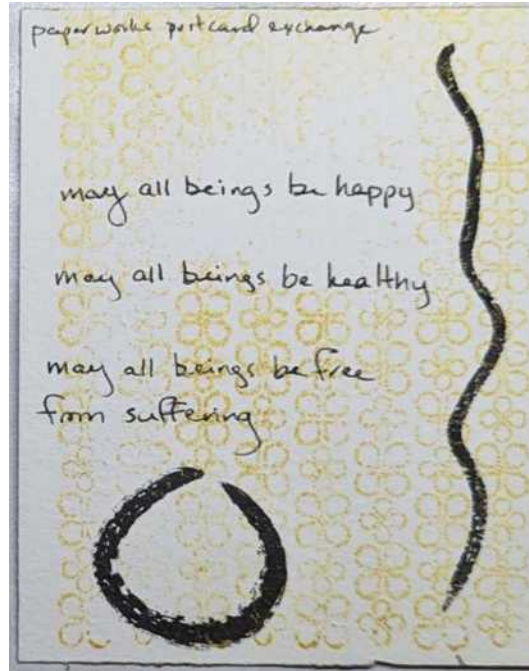 paperworks postcard exchange
may all beings be happy
may all beings be healthy
may all beings be free
from suffering